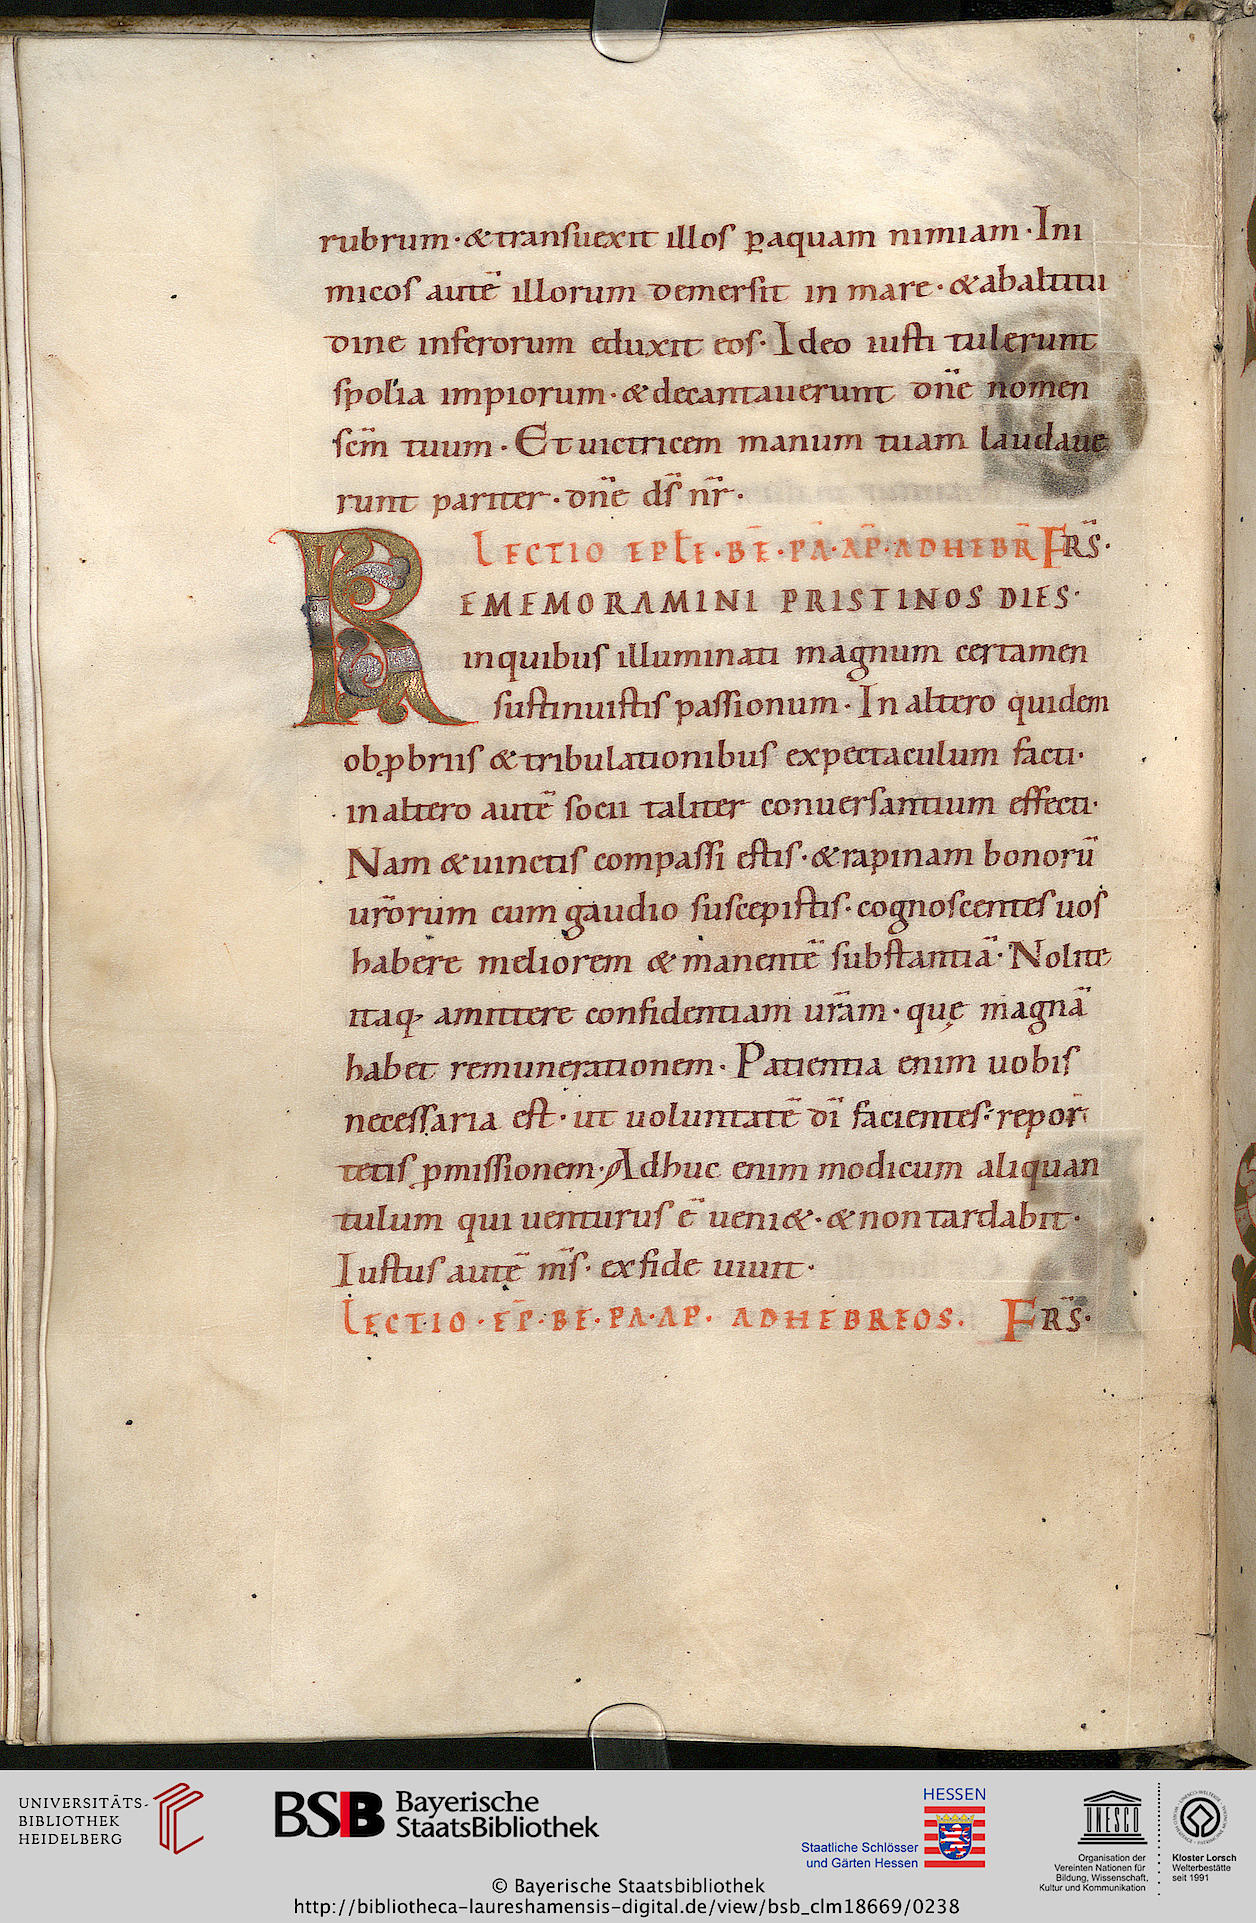 rubrum · & transuexit illos ꝑ aquam nimiam · Ini
micos autē illorum demersit in mare · & ab altitu
dine inferorum eduxit eos · Ideo iusti tulerunt
spolia impiorum · & decantauerunt dn̄e nomen
scm̄ tuum · Et uictricem manum tuam laudaue
runt pariter · dn̄e ds̄ nr̄ ·
LECTIO EPLE · BE · PA · AP · AD HEBR FRS ·
REMEMORAMINI PRISTINOS DIES ·
in quibus illuminati magnum certamen
sustinuistis passionum · In altero quidem
obꝓbriis & tribulationibus expectaculum facti ·
in altero autē socii taliter conuersantium effecti ·
Nam & uinctis compassi estis · & rapinam bonorū
ur̄orum cum gaudio suscepistis · cognoscentes uos
habere meliorem & manentē substantiā · Nolite
itaq; amittere confidentiam ur̄am · quę magnā
habet remunerationem · Patientia enim uobis
necessaria est · ut uoluntatē dī facientes · repor
tetis ꝓmissionem · Adhuc enim modicum aliquan
tulum qui uenturus ē ueni& · & non tardabit ·
Iustus autē ms̄ · ex fide uiuit ·
LECTIO · EP · BE · PA · AP · AD HEBREOS . FRS ·
UNIVERSITÄTS-
BIBLIOTHEK
HEIDELBERG
BSB Bayerische
StaatsBibliothek
HESSEN
Staatliche Schlösser
und Gärten Hessen
UNESCO
Organisation der
Vereinten Nationen für
Bildung, Wissenschaft,
Kultur und Kommunikation
Kloster Lorsch
Welterbestätte
seit 1991
© Bayerische Staatsbibliothek
http://bibliotheca-laureshamensis-digital.de/view/bsb_clm18669/0238